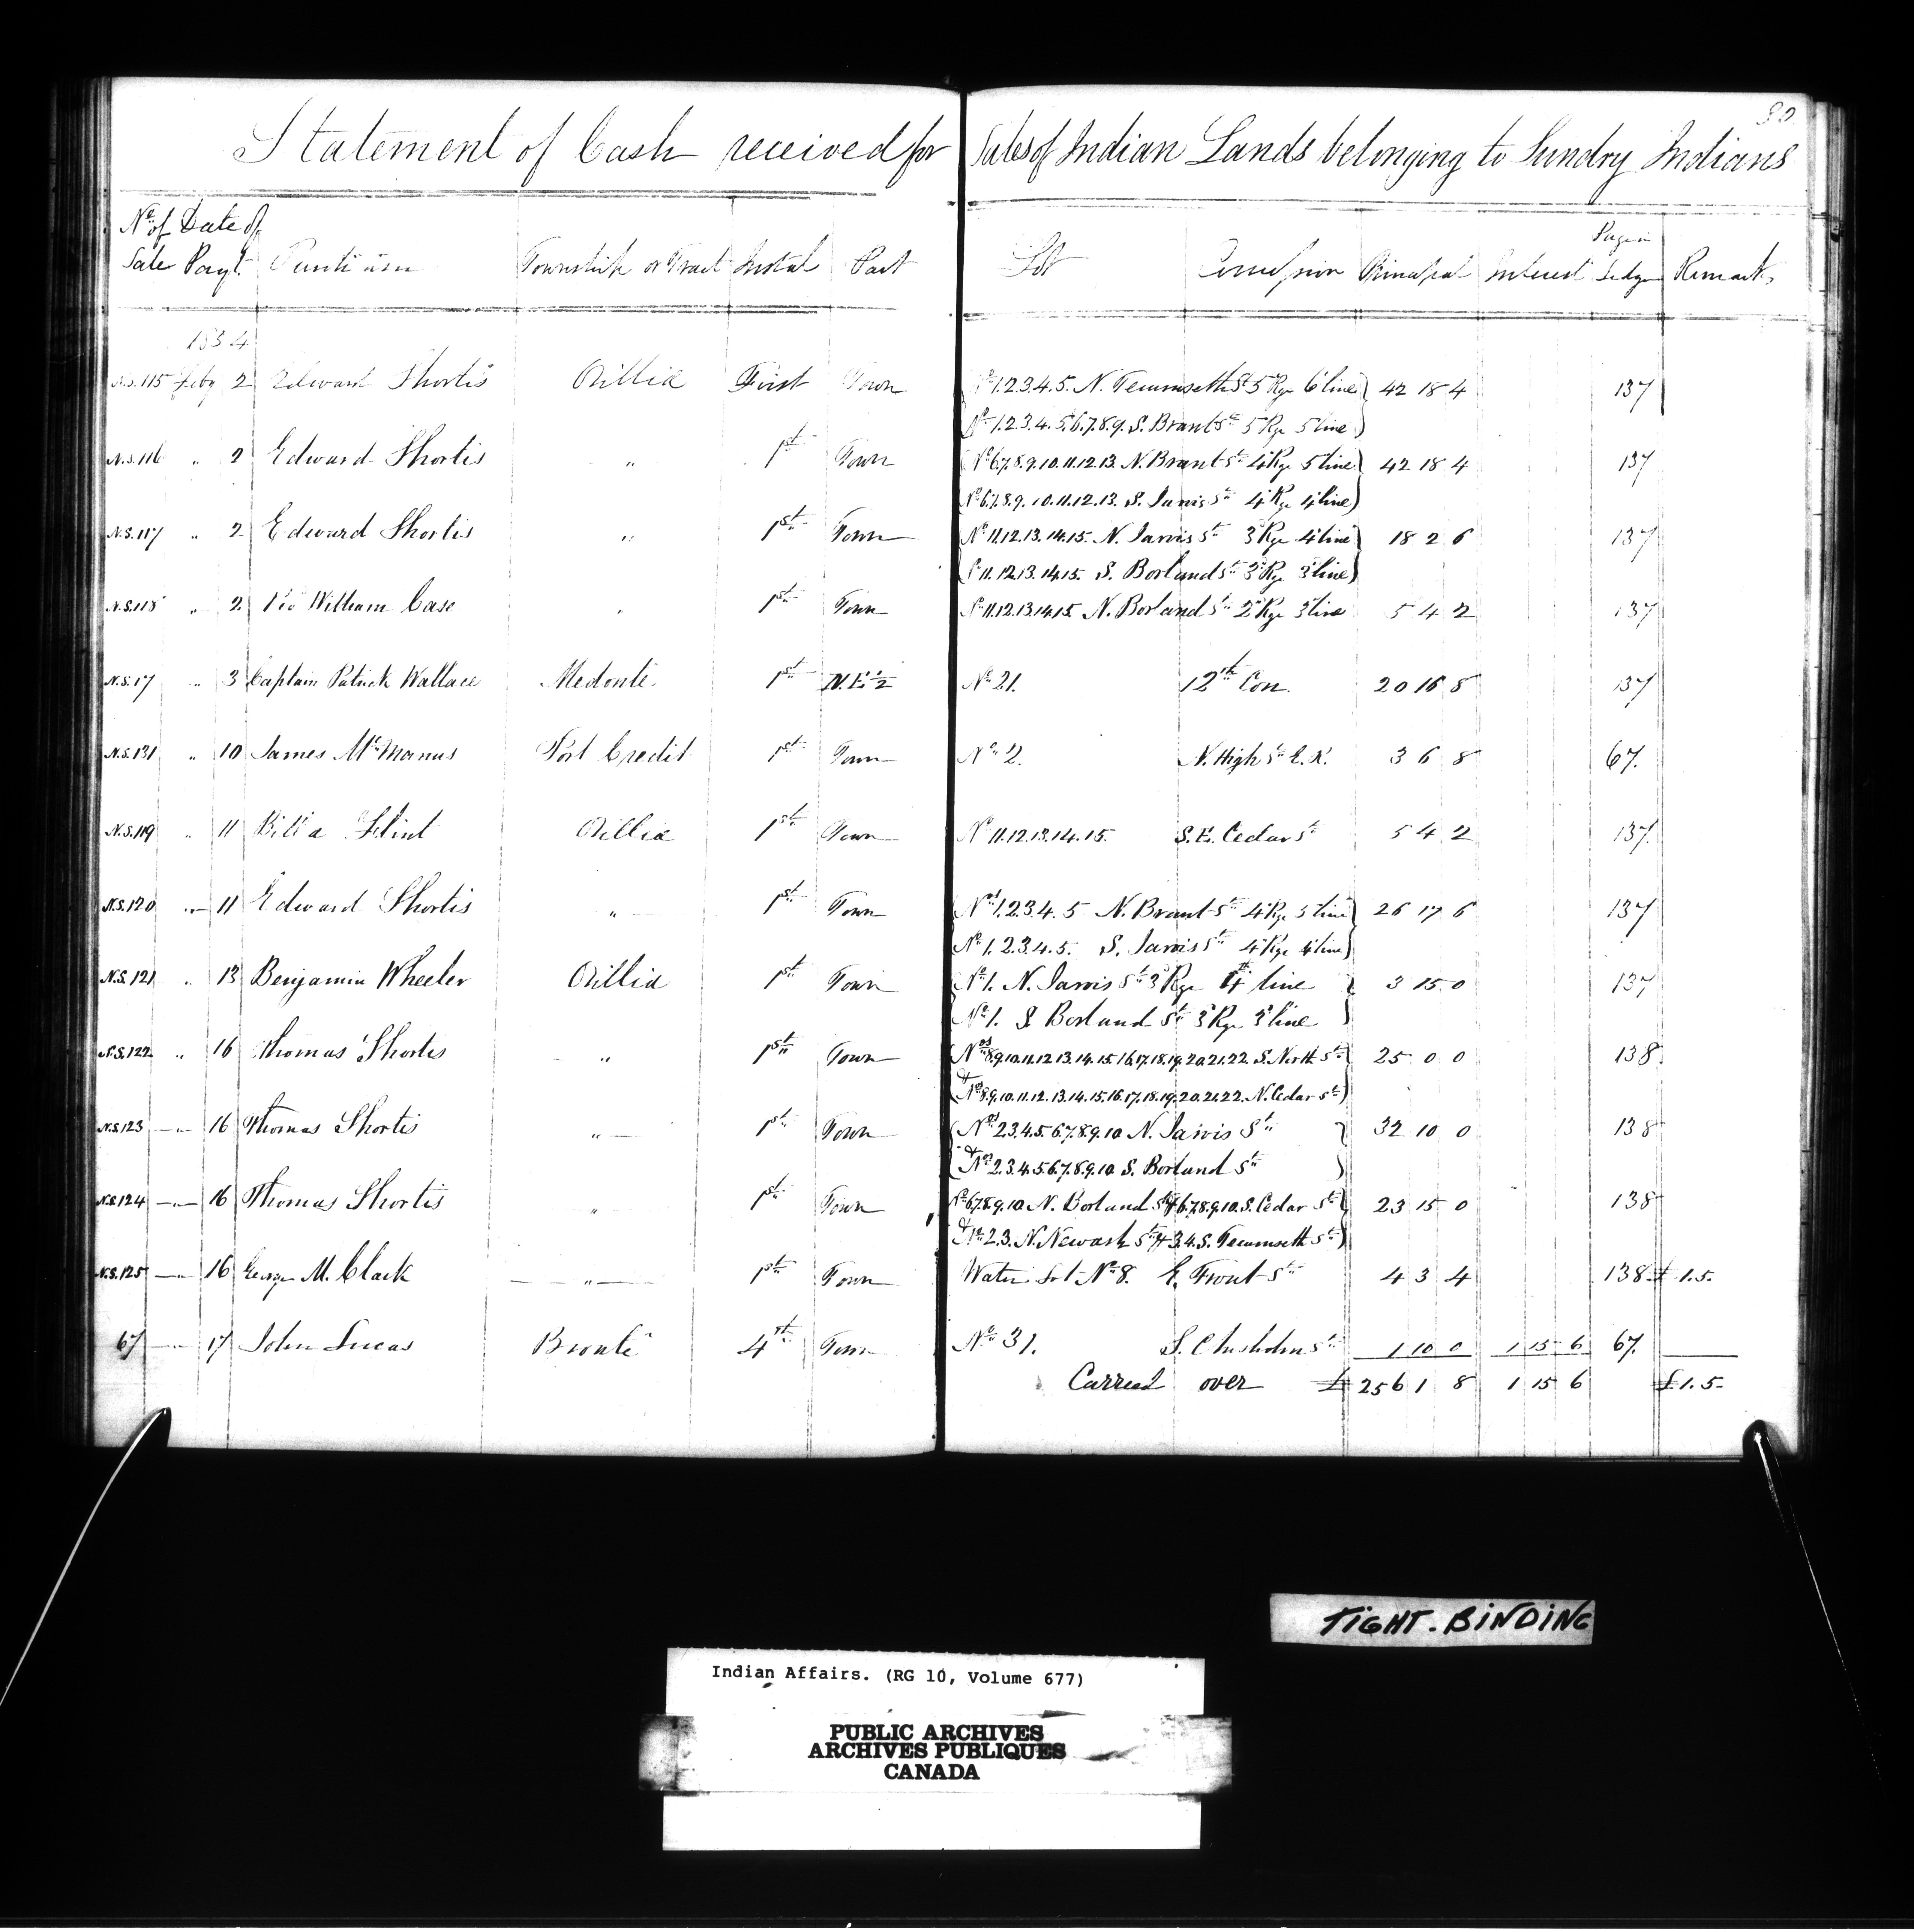 80
Statement of Cash received for Sales of Indian Lands belonging to Sundry Indians
No of Sale Date of Payt. Township or Tract Instal Part Lot Concession Principal Interest Page in Ledger Remarks
1834
N.S. 115 Feby 2 Edward Shortis Orillia First Town Nos 1.2.3.4.5. N. Tecumseth St 5 Rge 6 line 42 18 4 137
Nos 1.2.3.4.5.6.7.8.9. S. Brant St 5 Rge 5 line
N.S. 116 " 2 Edward Shortis " 1st Town Nos 6.7.8.9.10.11.12.13. N. Brant St 4 Rge 5 line 42 18 4 137
Nos 6.7.8.9.10.11.12.13. S. Jarvis St 4 Rge 4 line
N.S. 117 " 2 Edward Shortis " 1st Town Nos 11.12.13.14.15. N. Jarvis St 3 Rge 4 line 18 2 6 137
11.12.13.14.15. S. Borland St 3 Rge 3 line
N.S. 118 " 2 William Case " 1st Town Nos 11.12.13.14.15 N. Borland St 2 Rge 3 line 5 4 2 137
N.S. 17 " 3 Captain Patrick Wallace Medonte 1st N.E ½ No 21. 12th Con. 20 16 8 137
N.S. 131 " 10 James McManus Port Credit 1st Town No 2. N. High St C.R. 3 6 8 67.
N.S. 119 " 11 Billa Flint Orillia 1st Town Nos 11.12.13.14.15. S.E. Cedar St 5 4 2 137.
N.S. 120 " 11 Edward Shortis " 1st Town Nos 1.2.3.4.5 N. Brant St 4 Rge 5 line 26 17 6 137
Nos 1.2.3.4.5. S. Jarvis St 4 Rge 4 line
N.S. 121 " 13 Benjamin Wheeler Orillia 1st Town No 1. N. Jarvis St 3 Rge 4 line 3 15 0 137
No 1. S. Borland St 3 Rge 3 line
N.S. 122 " 16 Thomas Shortis " 1st Town Nos 8.9.10.11.12.13.14.15.16.17.18.19.20.21.22 S. North St 25 0 0 138
& Nos 8.9.10.11.12.13.14.15.16.17.18.19.20.21.22. N. Cedar St
N.S. 123 " 16 Thomas Shortis " 1st Town Nos 2.3.4.5.6.7.8.9.10 N. Jarvis St 32 10 0 138
& Nos 2.3.4.5.6.7.8.9.10 S. Borland St
N.S. 124 " 16 Thomas Shortis " 1st Town Nos 6.7.8.9.10 N. Borland St & 6.7.8.9.10. S. Cedar St 23 15 0 138
& Nos 2.3. N. Newash St & 3.4. S. Tecumseth St
N.S. 125 " 16 George M. Clark " 1st Town Water Lot No 8. E. Front St 4 3 4 138 £ 1.5.
67 " 17 John Lucas Bronte 4th Town No 31. S. Chisholm St 1 10 0 1 15 6 67.
Carried over £ 256 1 8 1 15 6 £ 1.5
TIGHT. BINDING
Indian Affairs. (RG 10, Volume 677)
PUBLIC ARCHIVES
ARCHIVES PUBLIQUES
CANADA